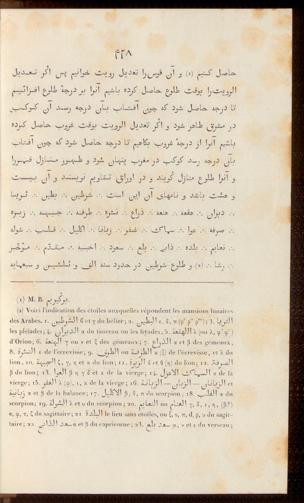 ۴۲۸
حاصل کنیم (۱) و آن قوسرا تعدیل رویت خوانیم پس اگر تعدیل
الرویت را بوقت طلوع حاصل کرده باشیم آنرا بر درجهٔ طلوع افزائیم
تا درجه حاصل شود که چون آفتاب بآن درجه رسد آن کوکب
در مشرق ظاهر شود و اگر تعدیل الرویت بوقت غروب حاصل کرده
باشیم آنرا از درجهٔ غروب بکاهیم تا درجه حاصل شود که چون آفتاب
بآن درجه رسد کوکب در مغرب پنهان شود و ظهور منازل قمررا
و آنرا طلوع منازل گویند و در اوراق تقاویم نویسند و آن بیست
و هشت باشد و نامهای آن این است ∴ شرطین ∴ بطین ∴ ثریا
∴ دبران ∴ هقعه ∴ هنعه ∴ ذراع ∴ نثره ∴ طرفه ∴ جبهه ∴ زبره
∴ صرفه ∴ عوا ∴ سماک ∴ غفر ∴ زبانا ∴ اکلیل ∴ قلب ∴ شوله
∴ نعایم ∴ بلده ∴ ذابح ∴ بلع ∴ سعود ∴ اخبیه ∴ مقدم ∴ مؤخر
∴ رشا ∴ (۲) و طلوع شرطین در حدود سنه الف و
(1) M. B.
(2) Voici l'indication des étoiles auxquelles répondent les mansions lunaires
des Arabes. 1. الشرطين, β et γ du bélier; 2. البطين,
les pléiades; 4. الدبران, α du taureau ou les hyades; 5. الهقعة,
d'Orion; 6. الهنعة, γ ou ν et ξ des gémeaux; 7. الذراع, α et β des gémeaux;
8. النثرة, ε de l'écrevisse; 9. الطرفة ou الطرف, de l'écrevisse, et λ du
lion; 10. الجبهة, ζ, γ, η et α du lion; 11. الزبرة, du lion; 12. الصرفة,
β du lion; 13. العوا, de la vierge; 14. السماك الاعزل, α de la
vierge; 15. الغفر, ι, κ, λ de la vierge; 16. الزبانا
α et β de la balance; 17. الاكليل, β, δ, π du scorpion; 18. القلب, α du
scorpion; 19. الشولة, λ et υ du scorpion; 20. النعايم
σ, φ, τ, ζ du sagittaire; 21. البلدة le lieu sans étoiles, du sagit-
taire; 22. سعد الذابح, α et β du capricorne; 23. سعد بلع, μ, ν et ε du verseau;